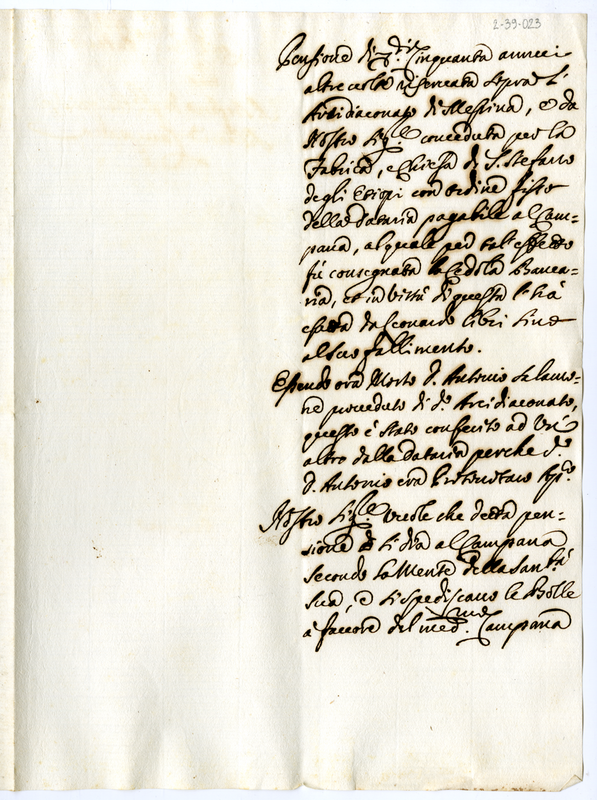 2-39-023
Pensione di Cinquanta annui
altre volte riservata sopra l'
Arcidiaconato di Messina, e da
Nostro Sig.re conceduta per la
Fabrica, e Chiesa di S. Stefano
degli Etiopi con ordine fisso
della Dataria pagabile al Cam=
pana, al quale per tal effetto
fù consegnata la Cedola Banca=
ria, et in virtù di questa l'hà
esatta da Leonardo Libri sino
al suo fallimento.
Essendo ora Morto D. Antonio
provveduto di d.o Arcidiaconato,
questo è stato conferito ad Un'
altro dalla Dataria perche d.o
D. Antonio era Protonotaro Ap.co
Nostro Sig.re vuole che detta pen=
sione si dia al Campana
secondo la Mente della San.tà
sua, e si spediscano le Bolle
à favore del med.mo Campana